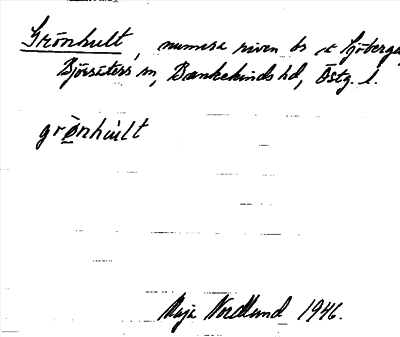 Grönhult, numera riven bs å Sjöberga,
Björsäters sn, Bankekinds hd, Östg. l.
grö̀nhúlt
Maja Nordlund 1946.